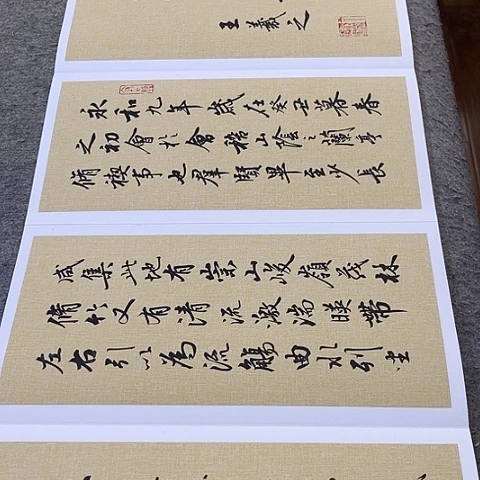 王羲之
永和九年歲在癸丑暮春
之初會於會稽山陰之蘭亭
脩禊事也羣賢畢至少長
咸集此地有崇山峻嶺茂林
脩竹又有清流激湍暎帶
左右引以為流觴曲水列坐